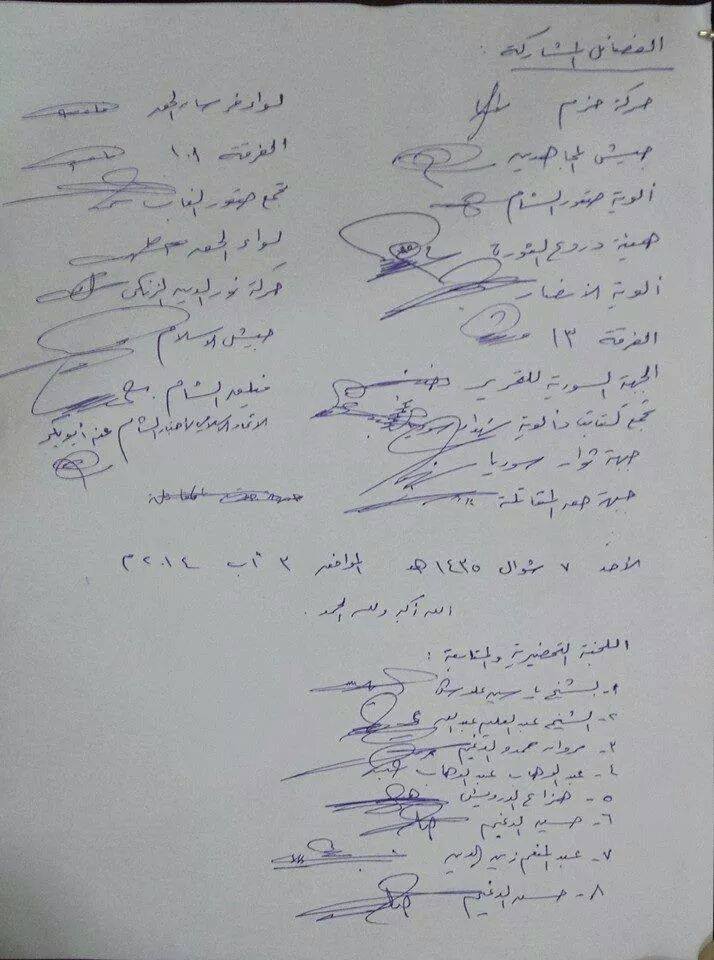 الفصائل المشاركة :
حركة حزم
جيش المجاهدين
ألوية صقور الشام
هيئة دروع الثورة
ألوية الأنصار
الفرقة ١٣
الجبهة السورية للتحرير
تجمع كتائب وألوية شهداء سوريا
جبهة ثوار سوريا
جبهة حق المقاتلة
لواء فرسان الحق
الفرقة ١٠١
تجمع صقور الغاب
لواء الحق
حركة نور الدين الزنكي
جيش الاسلام
فيلق الشام
الاتحاد الإسلامي لأجناد الشام عنه أبو بكر
الأحد ٧ شوال ١٤٣٥ هـ الموافق ٣ آب ٢٠١٤ م
الله أكبر ولله الحمد .
اللجنة التحضيرية والمتابعة :
١- الشيخ ياسين
٢- الشيخ عبد العليم عبد الله
٣- مروان حمدو الدغيم
٤- عبد الوهاب عبد الوهاب
٥- هزاع الدرويش
٦- حسين الدغيم
٧- عبد المنعم زين الدين
٨- حسن الدغيم